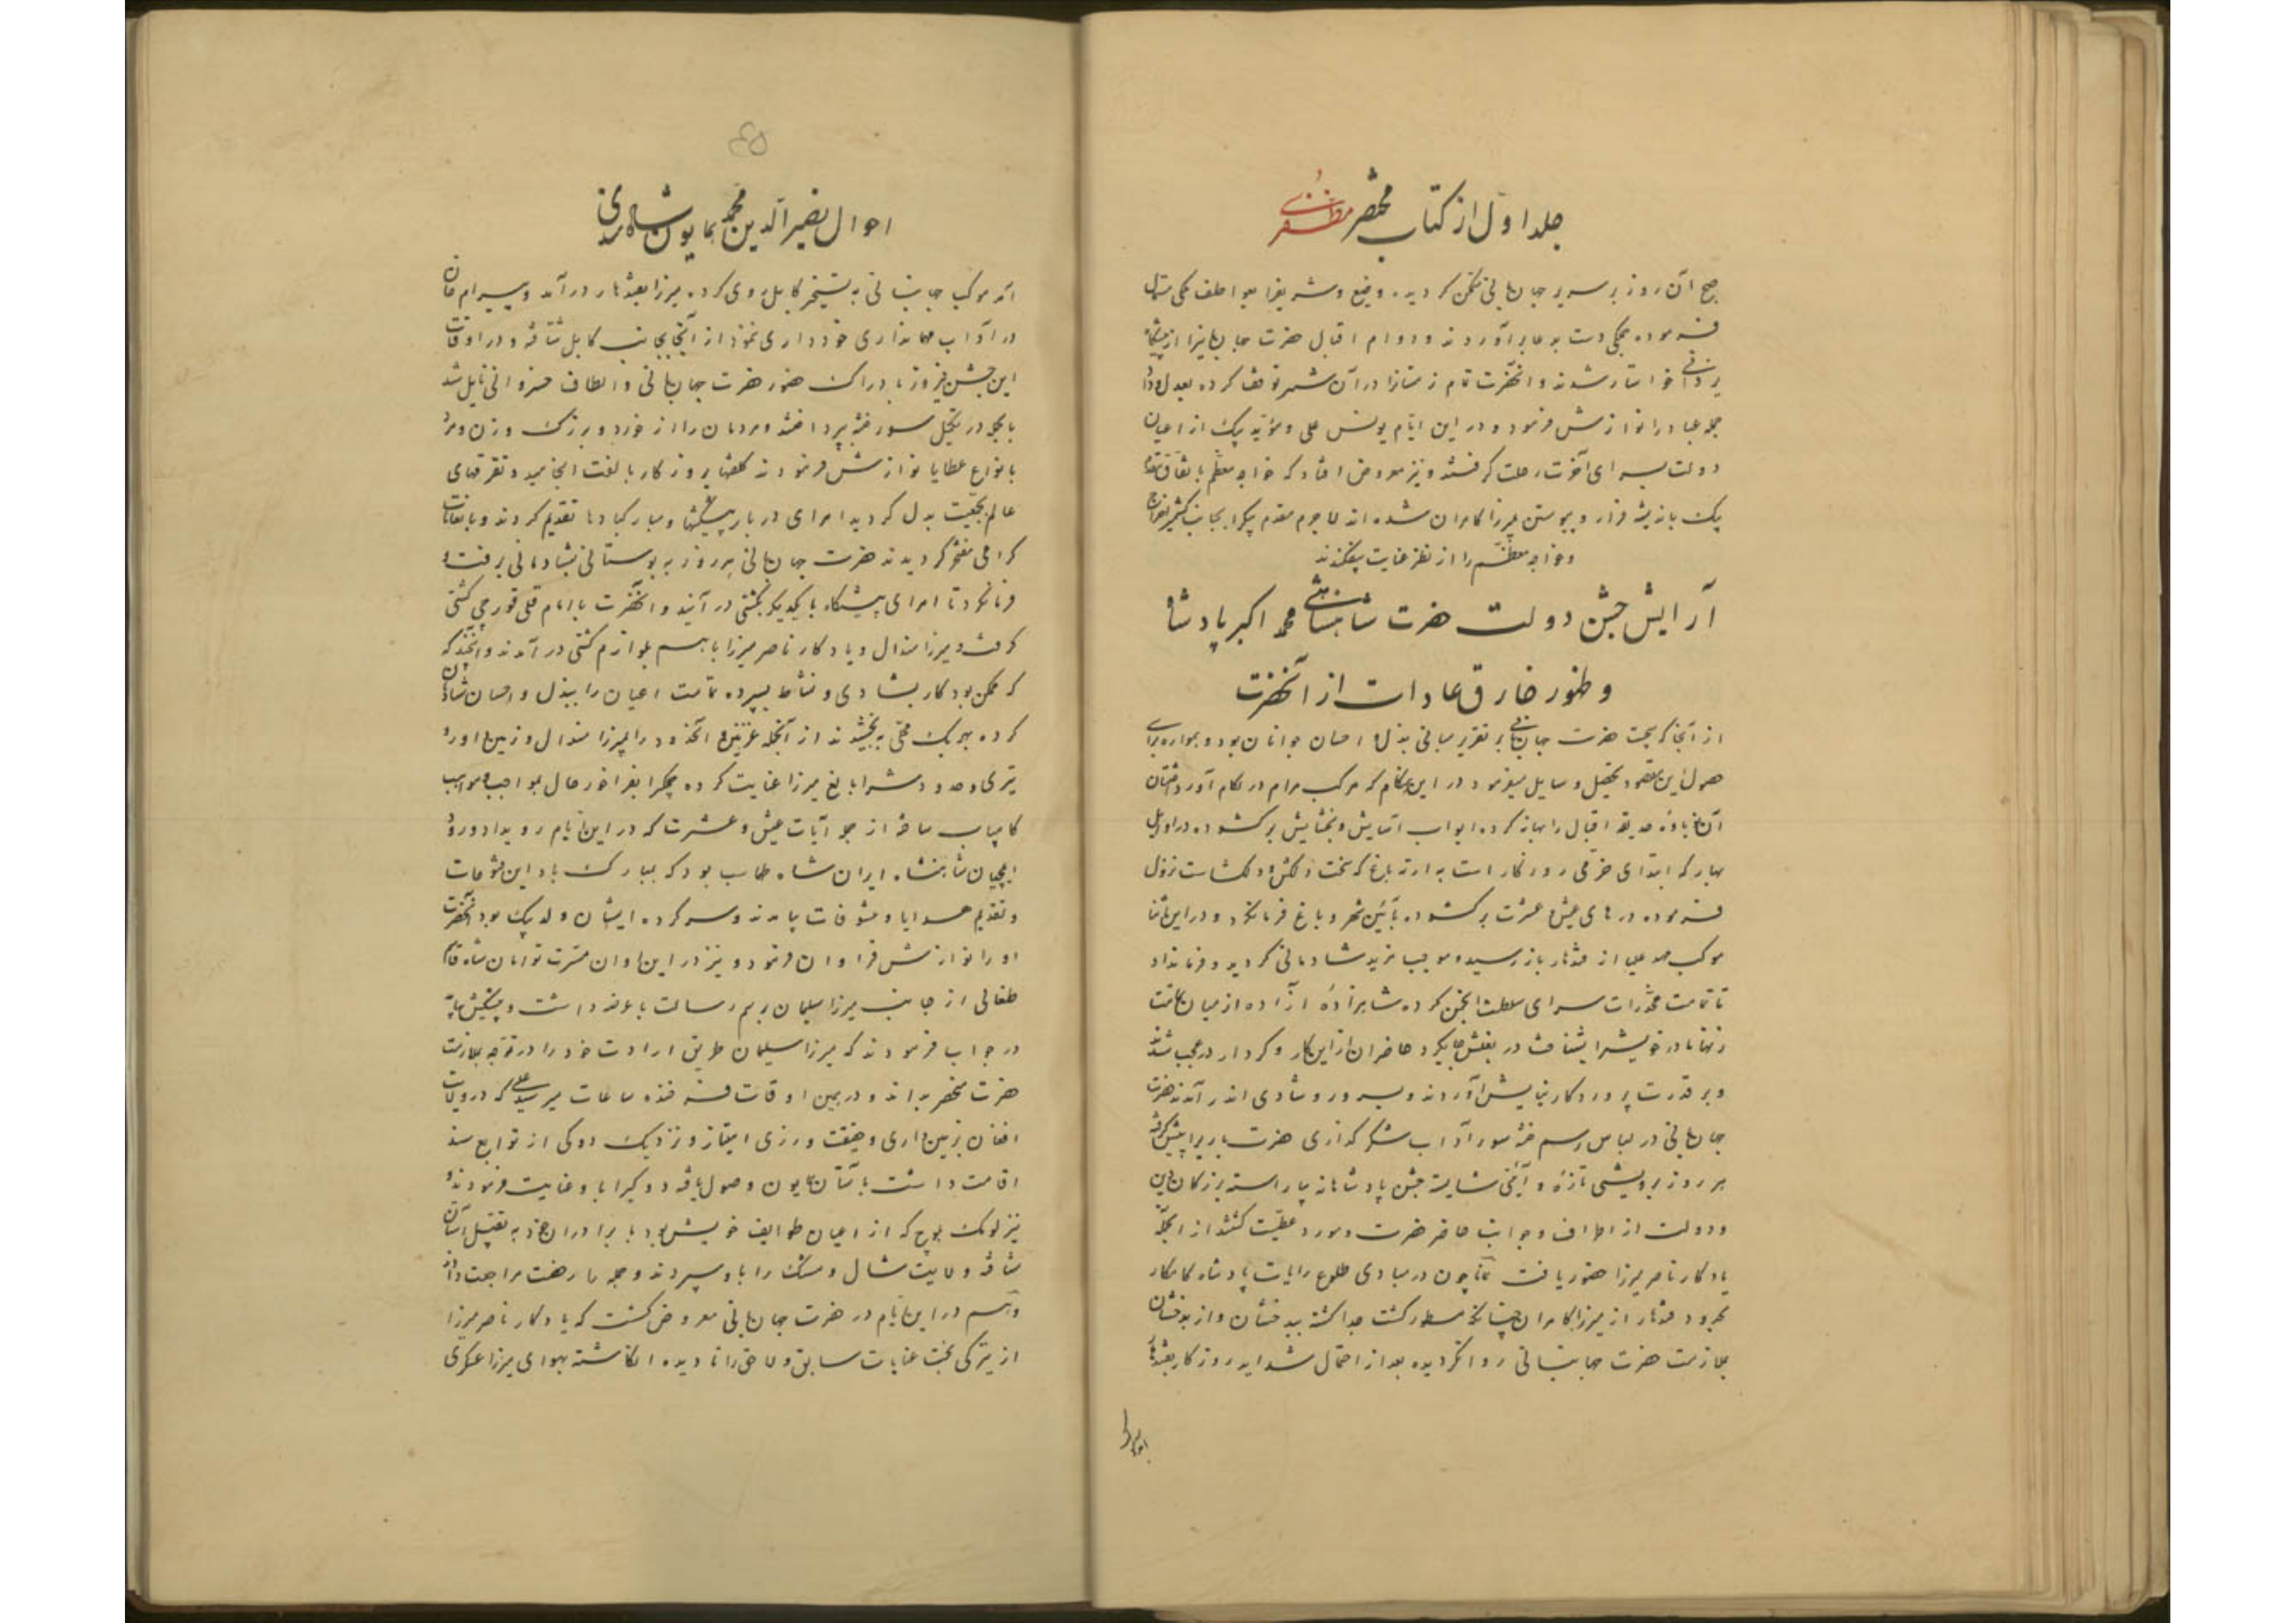 جلد اول از کتاب مختصر مظفری
صبح آن روز بر سریر جهانبانی تمکن گردیده وضیع و شریف را بعواطف ملکی
فرموده همگی دست بدعا برآوردند و دوام اقبال حضرت جهانبانیرا از پیشگاه
یزدانی خواستار شدند و آنحضرت تمام زمستانرا در آن شهر توقف کرده بعدل و داد
جمله عباد را نوازش فرمود و در این ایام یونس علی و مؤید بیک از اعیان
دولت بسرای آخرت رحلت گرفتند و نیز معروض افتاد که خواجه معظم باتفاق مقدم
بیک باندیشه فرار و پیوستن میرزا کامران شده‌اند لاجرم مقدم بیکرا بجانب کشمیر اخراج
و خواجه معظم را از نظر عنایت بیفکندند
آرایش جشن دولت حضرت شاهنشاهی محمد اکبر پادشاه
و ظهور خارق عادات از آنحضرت
از آنجا که همت حضرت جهانبانی بر تقریر مبانی بذل و احسان جوانان بود و همواره برای
حصول این مقصود تحصیل وسایل میفرمود در این هنگام که مرکب مرام در لکام آورد ختان
آن نوباوه حدیقه اقبال را بهانه کرده ابواب آسایش و بخشایش برکشوده در اوایل
بهار که ابتدای خرمی روزگار است به ارته باغ که سخت دلکش و دلگشاست نزول
فرموده درهای عیش و عشرت برکشوده بآئین شهر و باغ فرمانکرد و در این اثنا
موکب مهد علیا از قندهار باز رسید و موجب مزید شادمانی گردید و فرمانداد
تا تمامت مخدرات سرای سلطنت انجمن کرده شاهزاده آزاده از میان تمامت
زنها مادر خویشرا بشناخت در بغلش جایکرد حاضران از این کار و کردار در عجب شدند
و بر قدرت پروردگار نیایش آوردند و بسرور و شادی اندر آمدند حضرت
جهانبانی در لباس رسم ختنه سور آداب شکر گذاری حضرت باریرا پیش گرفته
هر روز بروشی تازه و آئینی شایسته جشن پادشاهانه بیاراسته بزرگان دین
و دولت از اطراف و جوانب حاضر حضرت و مورد عطیت گشتند از آنجمله
یادکار ناصر میرزا حضور یافت همانا چون در مبادی طلوع رایات پادشاه کامکار
بحدود قندهار از میرزا کامران چنانکه مسطور گشت جدا گشته ببدخشان و از بدخشان
بملازمت حضرت جهانبانی روانگردیده بعد از احتمال شداید روزگار بقندهار
احوال نصیرالدین محمد همایون شاه هندی
آمد موکب جهانبانی به تسخیر کابل روی کرده میرزا بقندهار درآمد و بیرام خان
در آداب مهمانداری خودداری ننمود از آنجا بجانب کابل شتافته و در اوقات
این جشن فیروز بادراک حضور حضرت جهانبانی و الطاف خسروانی نایل شد
بالجمله در تکمیل سور ختنه بپرداختند و مردمان را از خورد و بزرگ و زن و مرد
بانواع عطایا نوازش فرمودند کلفتهای روزگار بالفت انجامید و تفرقهای
عالم بجمعیت بدل گردید امرای دربار پیشکشها و مبارکبادها تقدیم کردند و بانعامات
گرامی مفتخر گردیدند حضرت جهانبانی هر روز به بوستانی بشادمانی برفت و
فرمانکرد تا امرای پیشگاه با یکدیگر بکشتی درآیند و آنحضرت با امام قلی قورچی کشتی
گرفت و میرزا هندال و یادکار ناصر میرزا باهم بلوازم کشتی درآمدند و آنچند که
که ممکن بود کار بشادی و نشاط بسپرده تمامت اعیان را ببذل و احسان شادمان
کرده بهریک محلی ببخشیدند از آنجمله غزنین و آنحدود را بمیرزا هندال و زمین داور و
تیری و حدودش را بالغ میرزا عنایت کرده همگی را بفراخور حال بمواجب و مواهب
کامیاب ساخته از جمله آیات عیش و عشرت که در این ایام رویداد ورود
ایلچیان شاهنشاه ایران شاه طهماسب بود که بمبارک باد این فتوحات
و تقدیم هدایا و متوفات بیامدند و سرکرده ایشان ولد بیک بود آنحضرت
او را نوازش فراوان فرمود و نیز در این اوان مسرت توامان شاه قاسم
طغائی از جانب میرزا سلیمان برسم رسالت با عرضه داشت و پیشکش بیامد
در جواب فرمودند که میرزا سلیمان طریق ارادت خود را در توجه بملازمت
حضرت منحصر بداند و در همین اوقات فرخنده ساعات میر سید علی که در ولایت
افغان بزمین داری و حقیقت ورزی امتیاز و نزدیک دوکی از توابع سند
اقامت داشت بآستان همایون وصول یافته دوکی را باو عنایت فرمودند و
نیز لونک بلوچ که از اعیان طوایف خویش بود با برادران خود به تقبیل آستان
شتافته ولایت شال و مستنگ را باو سپردند و جمله را رخصت مراجعت دادند
و هم در این ایام در حضرت جهانبانی معروض گشت که یادکار ناصر میرزا
از تیرگی بخت عنایات سابق و لاحق را نادیده انگاشته بهوای میرزا عسکری